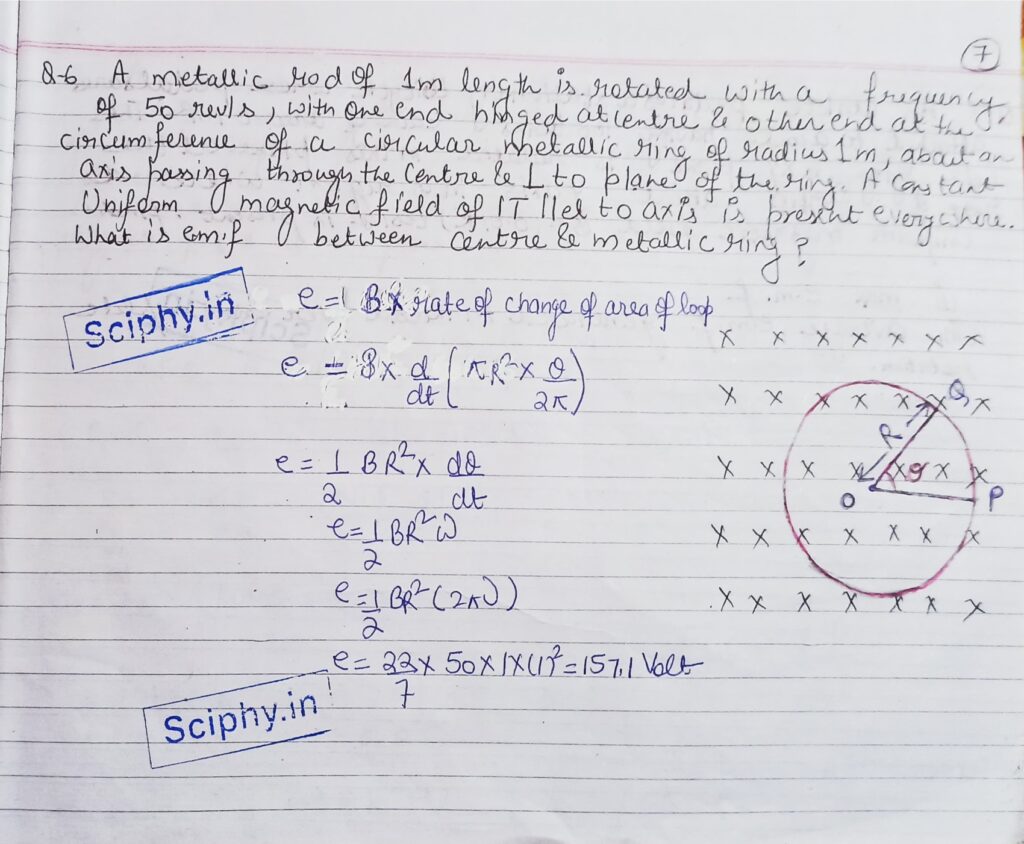 7
Q-6 A metallic rod of 1m length is rotated with a frequency
of 50 rev/s, with one end hinged at centre & other end at the
circumference of a circular metallic ring of radius 1m, about an
axis passing through the centre & ⊥ to plane of the ring. A constant
Uniform magnetic field of 1T llel to axis is present everywhere.
What is emif between centre & metallic ring?
Sciphy.in
e = B × rate of change of area of loop
e = B × d/dt (πR² × θ/2π)
e = 1/2 BR² × dθ/dt
e = 1/2 BR²ω
e = 1/2 BR² (2πν)
e = 22/7 × 50 × 1 × (1)² = 157.1 Volt
Sciphy.in
x x x x x x x
x x x x x Q x
R
x x x x x θ x x
O P
x x x x x x x
x x x x x x x